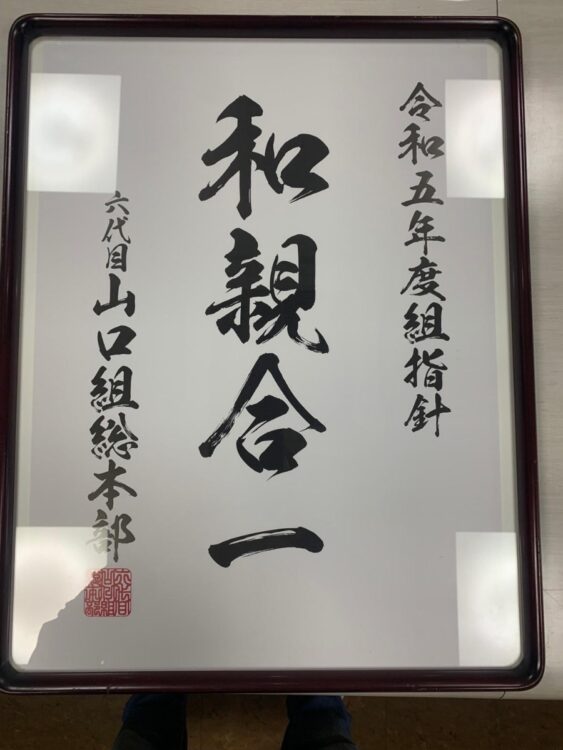 令和五年度組指針
和親合一
六代目山口組総本部